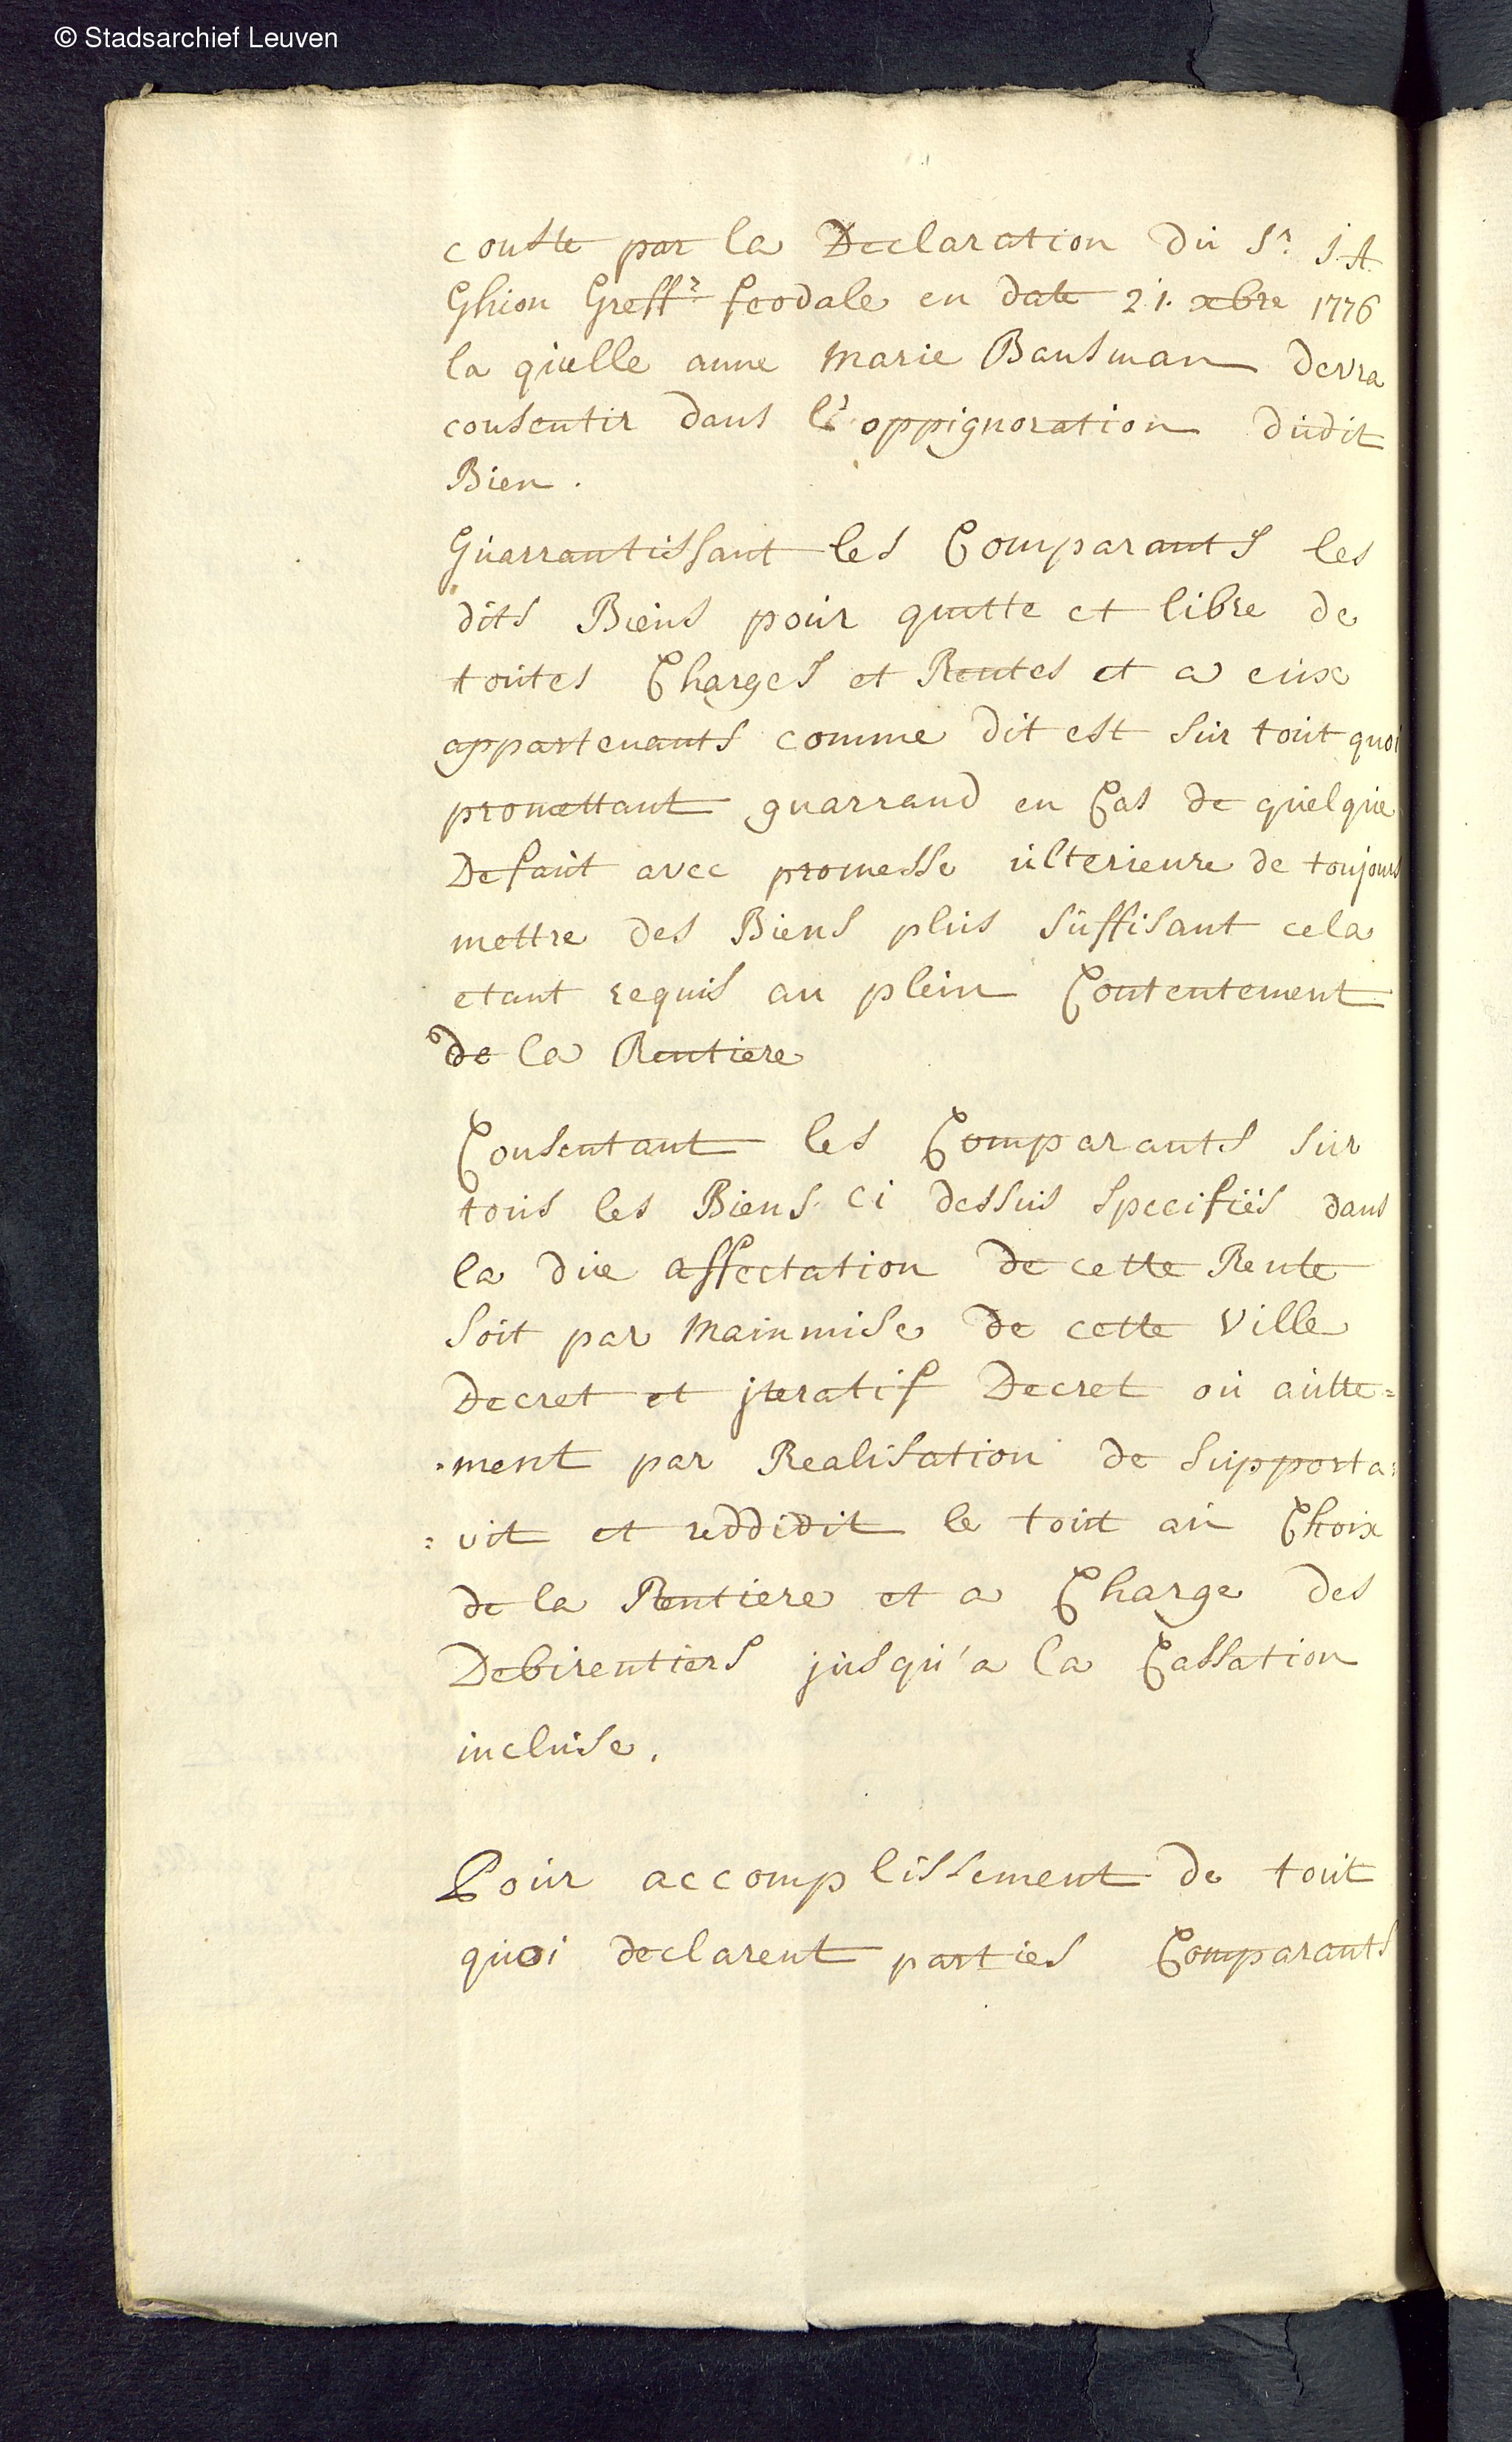 © Stadsarchief Leuven
conste par la Declaration du Sr. J. A.
Ghion Greffr. feodale en date 21. xbre 1776
la quelle anne Marie Bausman devra
consentir dans l'oppignoration dudit
Bien.
Guarrantissant les Comparants les
dits Biens pour quitte et libre de
toutes Charges et Rentes et a eux
appartenants comme dit est sur tout quoi
promettant guarrand en Cas de quelque
Defaut avec promesse ulterieure de toujours
mettre des Biens plus suffisant cela
etant requis au plein Contentement
de la Rentiere
Consentant les Comparants sur
tous les Biens ci dessus specifiés dans
la due affectation de cette Rente
soit par mainmise de cette Ville
Decret et iteratif Decret ou autre=
=ment par Realisation de supporta=
=vit et reddidit le tout au Choix
de la Rentiere et a Charge des
Debirentiers jusqu'a la Cassation
incluse.
Pour accomplissement de tout
quoi declarent parties Comparants